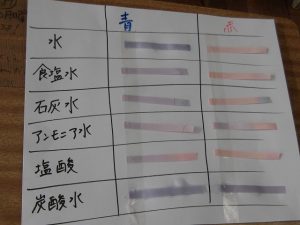 青 赤
水
食塩水
石灰水
アンモニア水
塩酸
炭酸水